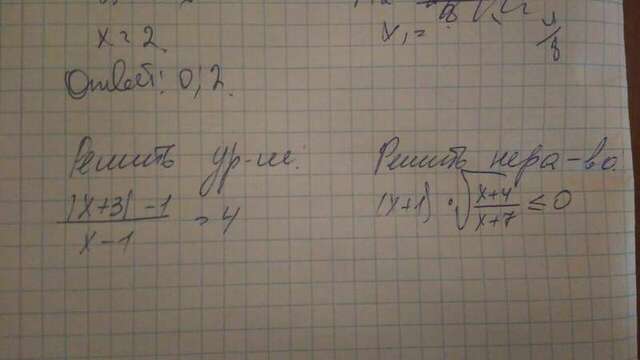 x = 2.
Ответ: 0; 2.
Решить ур-ие:
|x+3| - 1
x - 1
= 4
Решить нера-во.
(x+1) · √
x+4
x+7
≤ 0